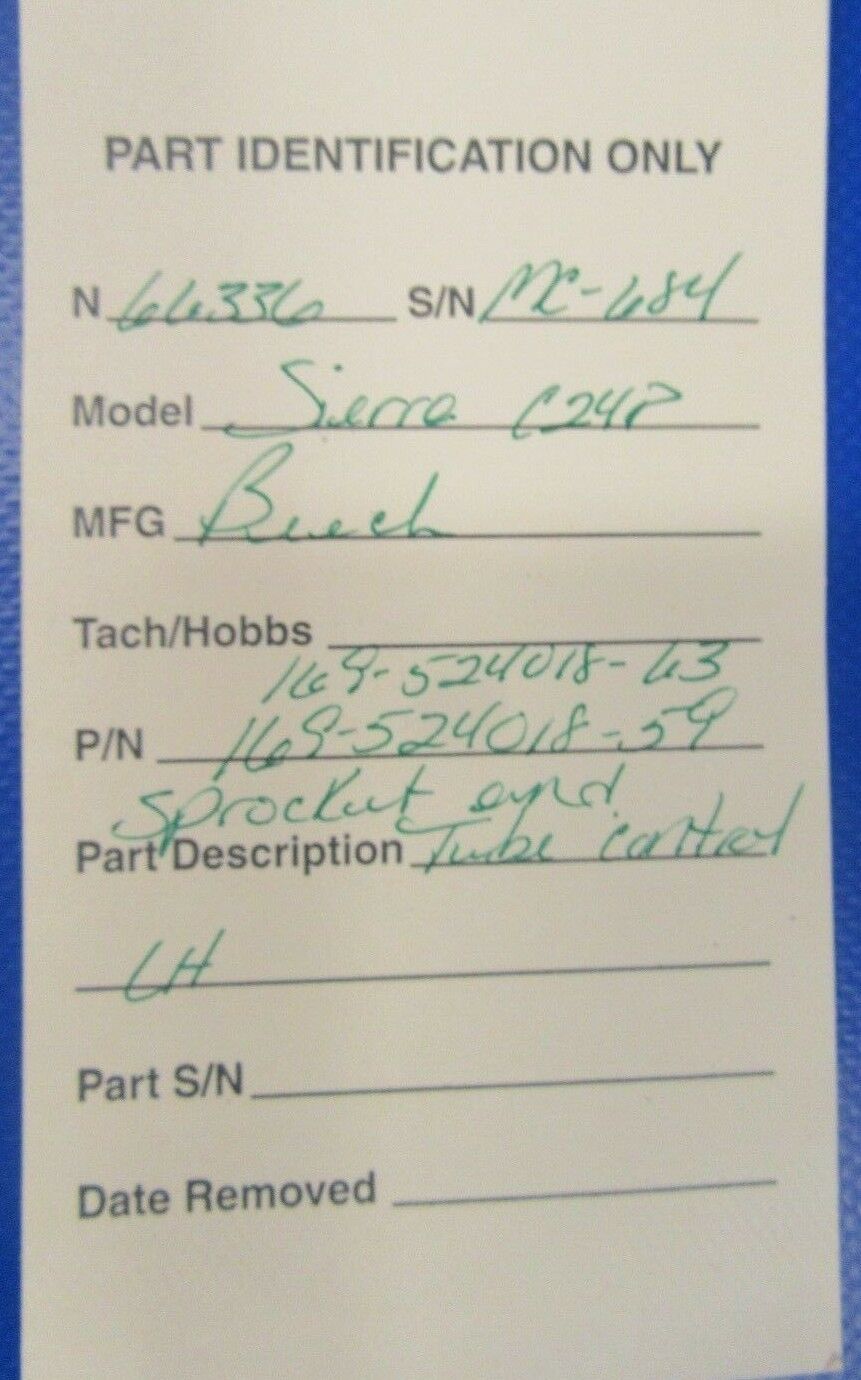 PART IDENTIFICATION ONLY
N 66336 S/N MC-684
Model Sierra C24R
MFG Beech
Tach/Hobbs
169-524018-63
P/N 169-524018-59
Sprocket and
Part Description Tube control
LH
Part S/N
Date Removed